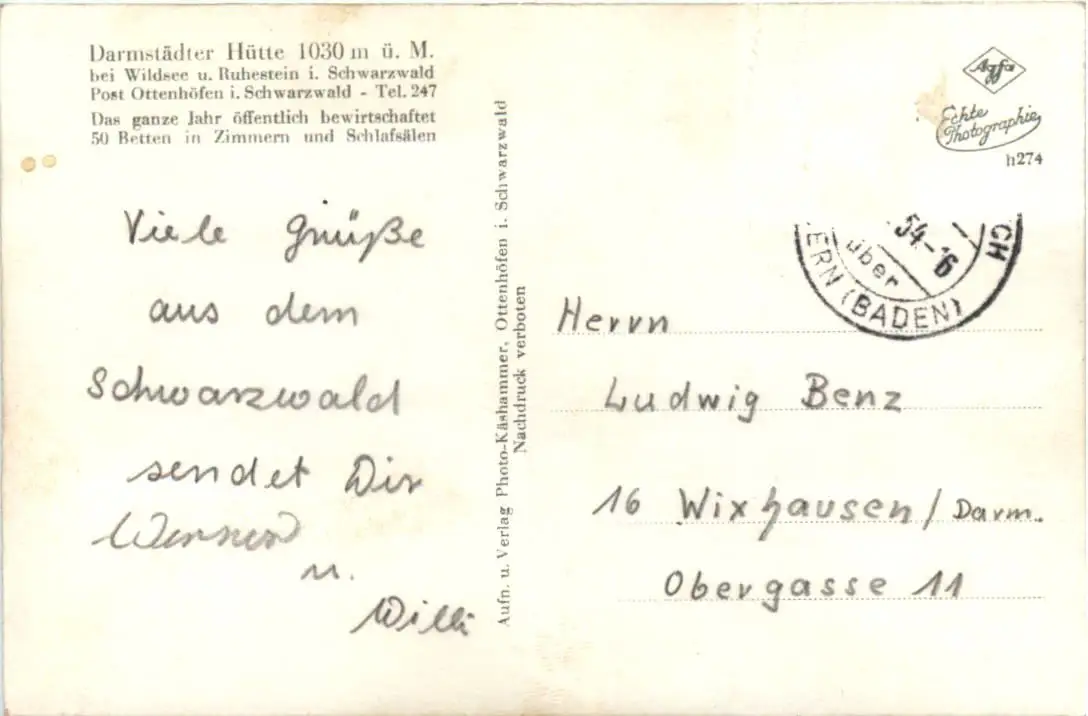 Darmstädter Hütte 1030 m ü. M.
bei Wildsee u. Ruhestein i. Schwarzwald
Post Ottenhöfen i. Schwarzwald - Tel. 247
Das ganze Jahr öffentlich bewirtschaftet
50 Betten in Zimmern und Schlafsälen
Viele Grüße
aus dem
Schwarzwald
sendet Dir
Werner
u.
Willi
Aufn. u. Verlag Photo-Käshammer, Ottenhöfen i. Schwarzwald
Nachdruck verboten
Agfa
Echte
Photographie
h274
54-16
über
CH
ERN (BADEN)
Herrn
Ludwig Benz
16 Wixhausen/Darm.
Obergasse 11